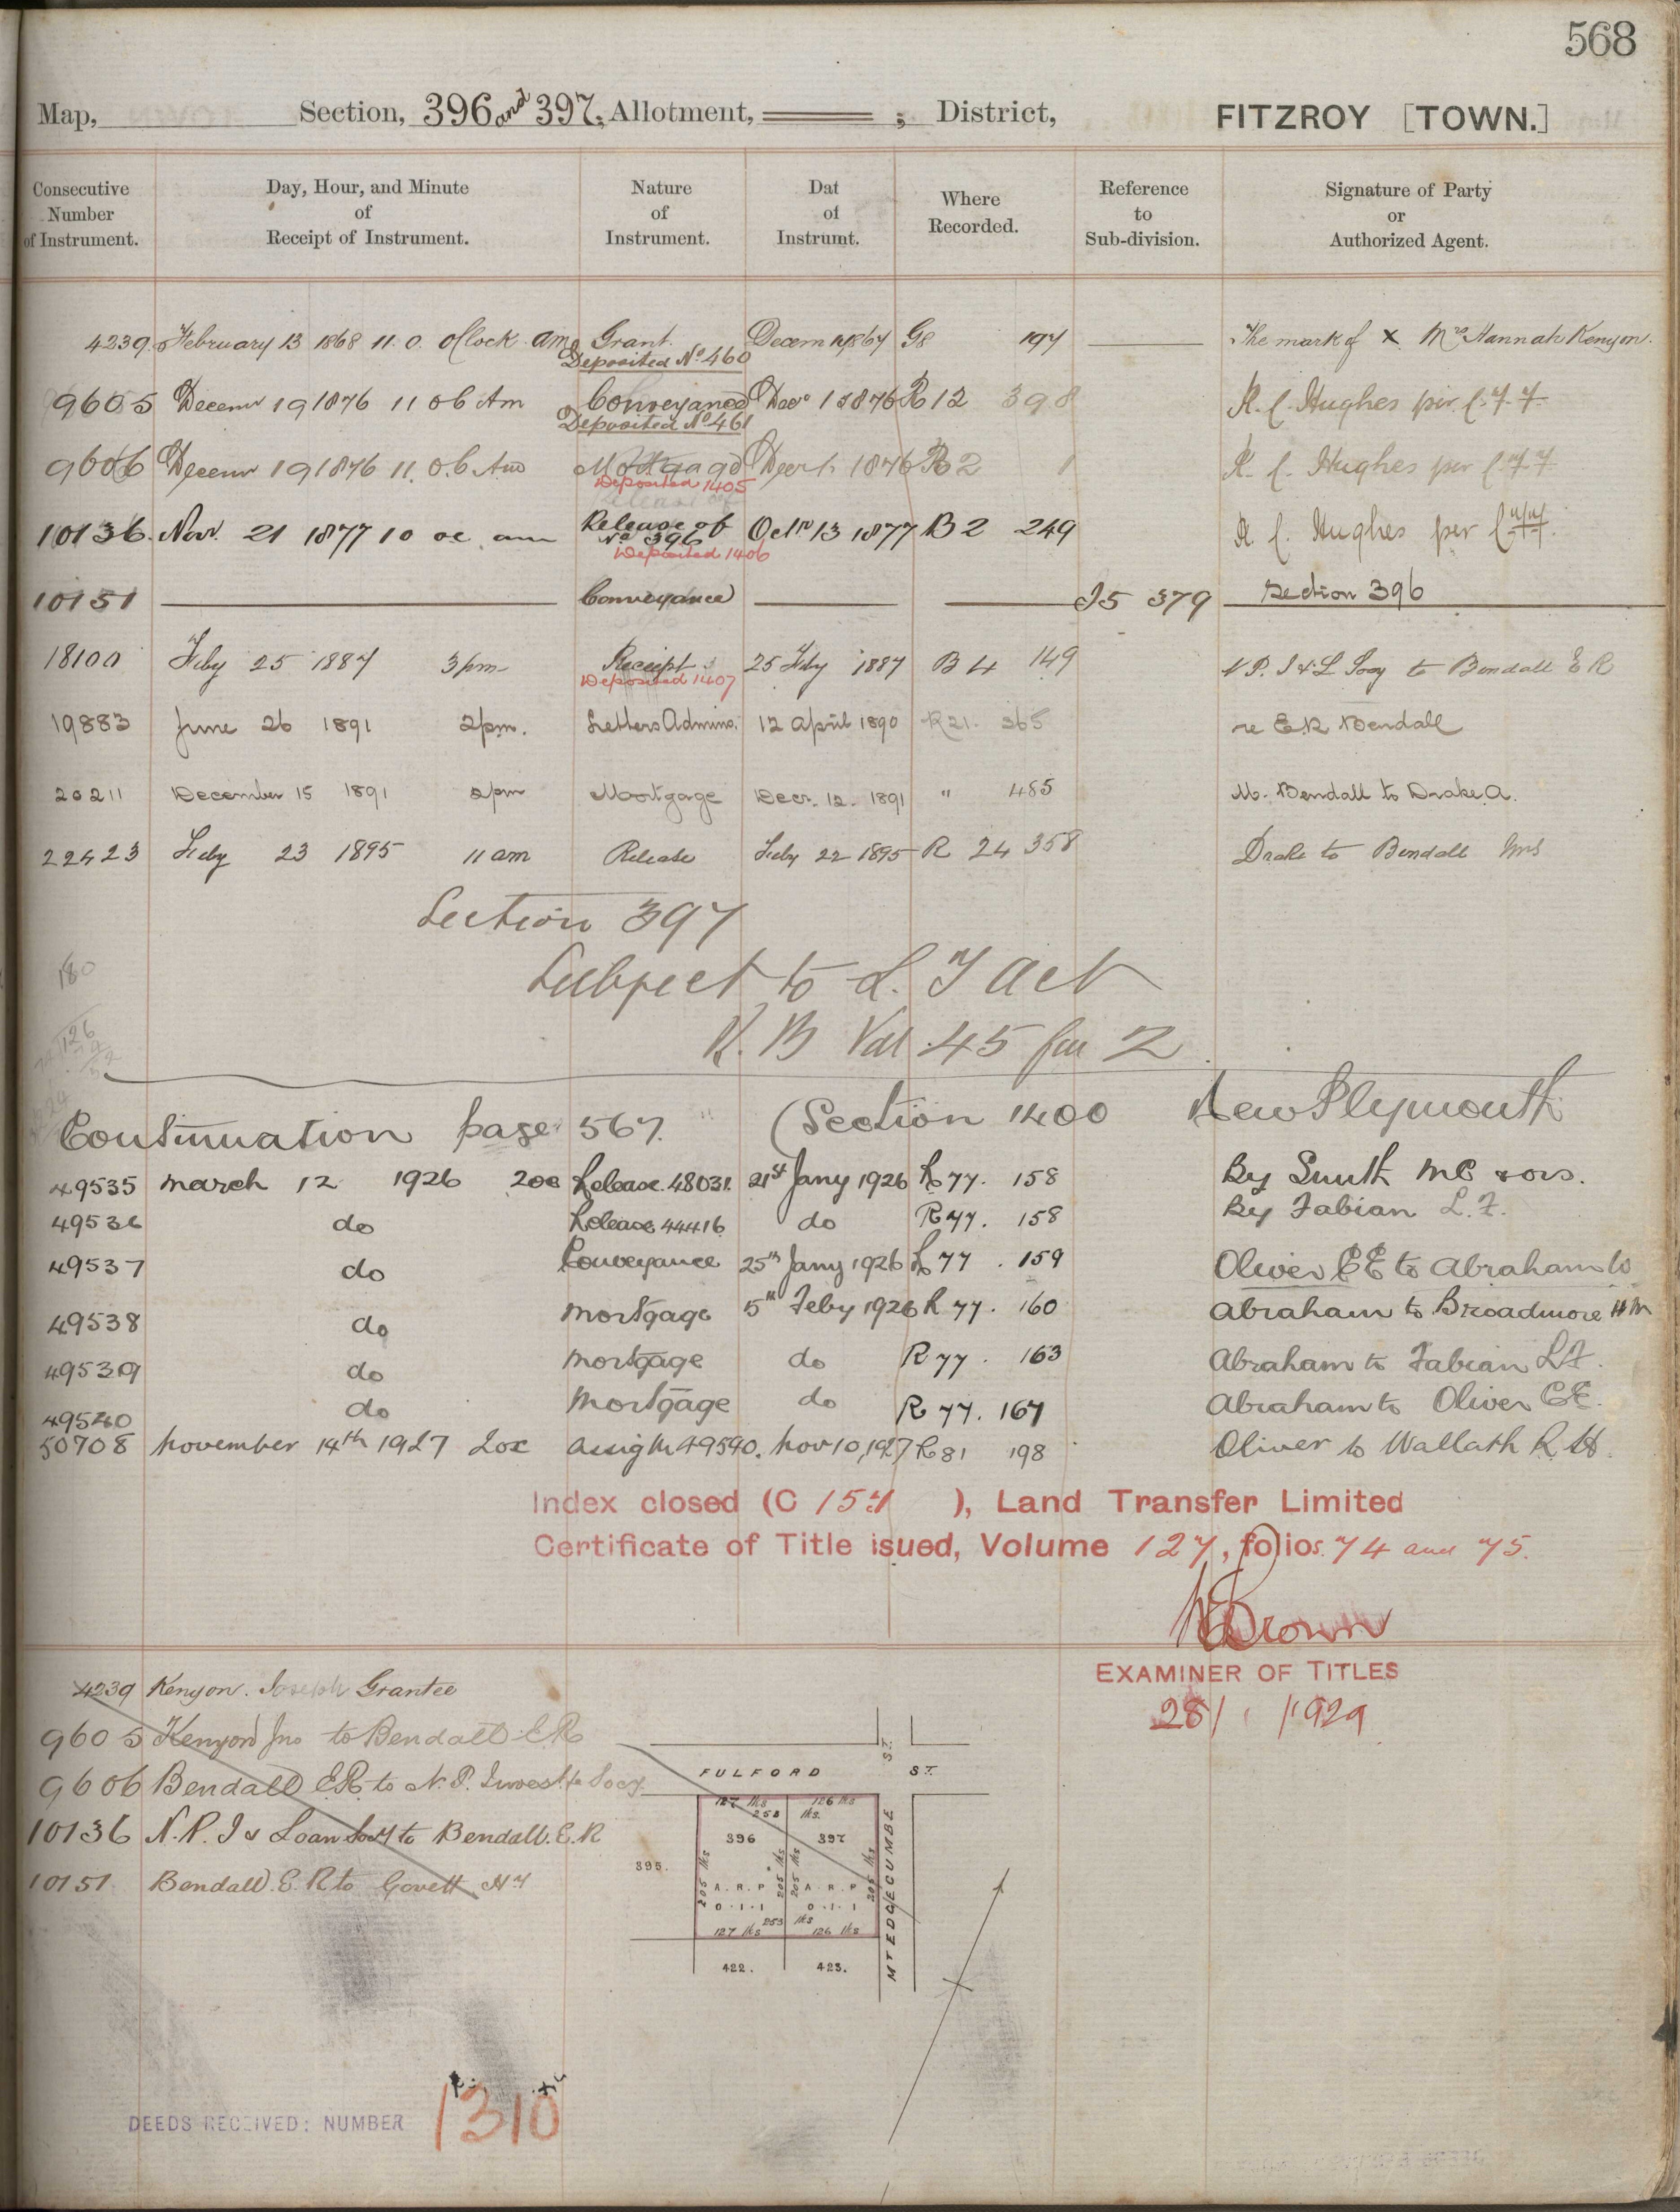 568
Map, Section, 396 and 397, Allotment, ; District, FITZROY [TOWN.]
Consecutive Number of Instrument. Day, Hour, and Minute of Receipt of Instrument. Nature of Instrument. Dat of Instrumt. Where Recorded. Reference to Sub-division. Signature of Party or Authorized Agent.
4239. February 13 1868 11. 0. oClock. am Grant. Decem 1867 G8 197 The mark of X Mrs Hannah Kenyon.
Deposited No 460
9605 Decemr 19 1876 11 0 6 Am Conveyance Decr 1 1876 R12 398 R. C. Hughes per
Deposited No 461
9606 Decemr 19 1876 11. 0. 6 Am Mortgage Decr 1. 1876 B2 1 R. C. Hughes per
Deposited 1405
10136. Nov. 21 1877 10 oc am Release of No 396 Octr 13 1877 B2 249 R. C. Hughes per
Deposited 1406
10151 Conveyance I5 379 Section 396
18100 Feby 25 1887 3pm Receipt 25 Feby 1887 B4 149 N P. I & L Socy to Bendall E R
Deposited 1407
19883 June 26 1891 2pm. Letters Admins. 12 April 1890 R21. 365 re E.R. Bendall
20211 December 15 1891 2pm Mortgage Decr. 12. 1891 " 485 M. Bendall to Drake. A.
22423 Feby 23 1895 11 am Release Feby 22 1895 R 24 358 Drake to Bendall Mrs
Section 397
Subject to L. T Act
R. B Vol. 45 fol 2
180
126
Continuation page 567. (Section 1400 New Plymouth
49535 March 12 1926 2oc Release 48031. 21st Jany 1926 R77. 158 By Smith MC & ors.
49536 do Release 44416 do R77. 158 By Fabian L. F.
49537 do Conveyance 25th Jany 1926 R77. 159 Oliver C E to Abraham W
49538 do Mortgage 5th Feby 1926 R 77. 160 Abraham to Broadmore H M
49539 do Mortgage do R77. 163 Abraham to Fabian L F.
49540 do Mortgage do R 77. 167 Abraham to Oliver C E.
50708 November 14th 1927 2oc Assig M 49540. Nov 10, 1927 R81 198 Oliver to Wallath R. H.
Index closed (C 154 ), Land Transfer Limited
Certificate of Title issued, Volume 127, folios. 74 and 75.
Brown
EXAMINER OF TITLES
28/ 1/ 1929
4239 Kenyon. Joseph Grantee
9605 Kenyon Jno to Bendall E R
9606 Bendall E.R. to N. P. Investt. Socy
10136 N. P. I & Loan Socy to Bendall. E. R
10151 Bendall. E. R to Govett Hy
FULFORD ST.
ST.
127 lks 126 lks
253 lks.
396 397
395.
205 lks 205 lks 205 lks 205 lks
A. R. P A. R. P
0. 1. 1 0. 1. 1
253 lks
127 lks 126 lks
422. 423.
MT EDGECUMBE
DEEDS RECEIVED: NUMBER 1310